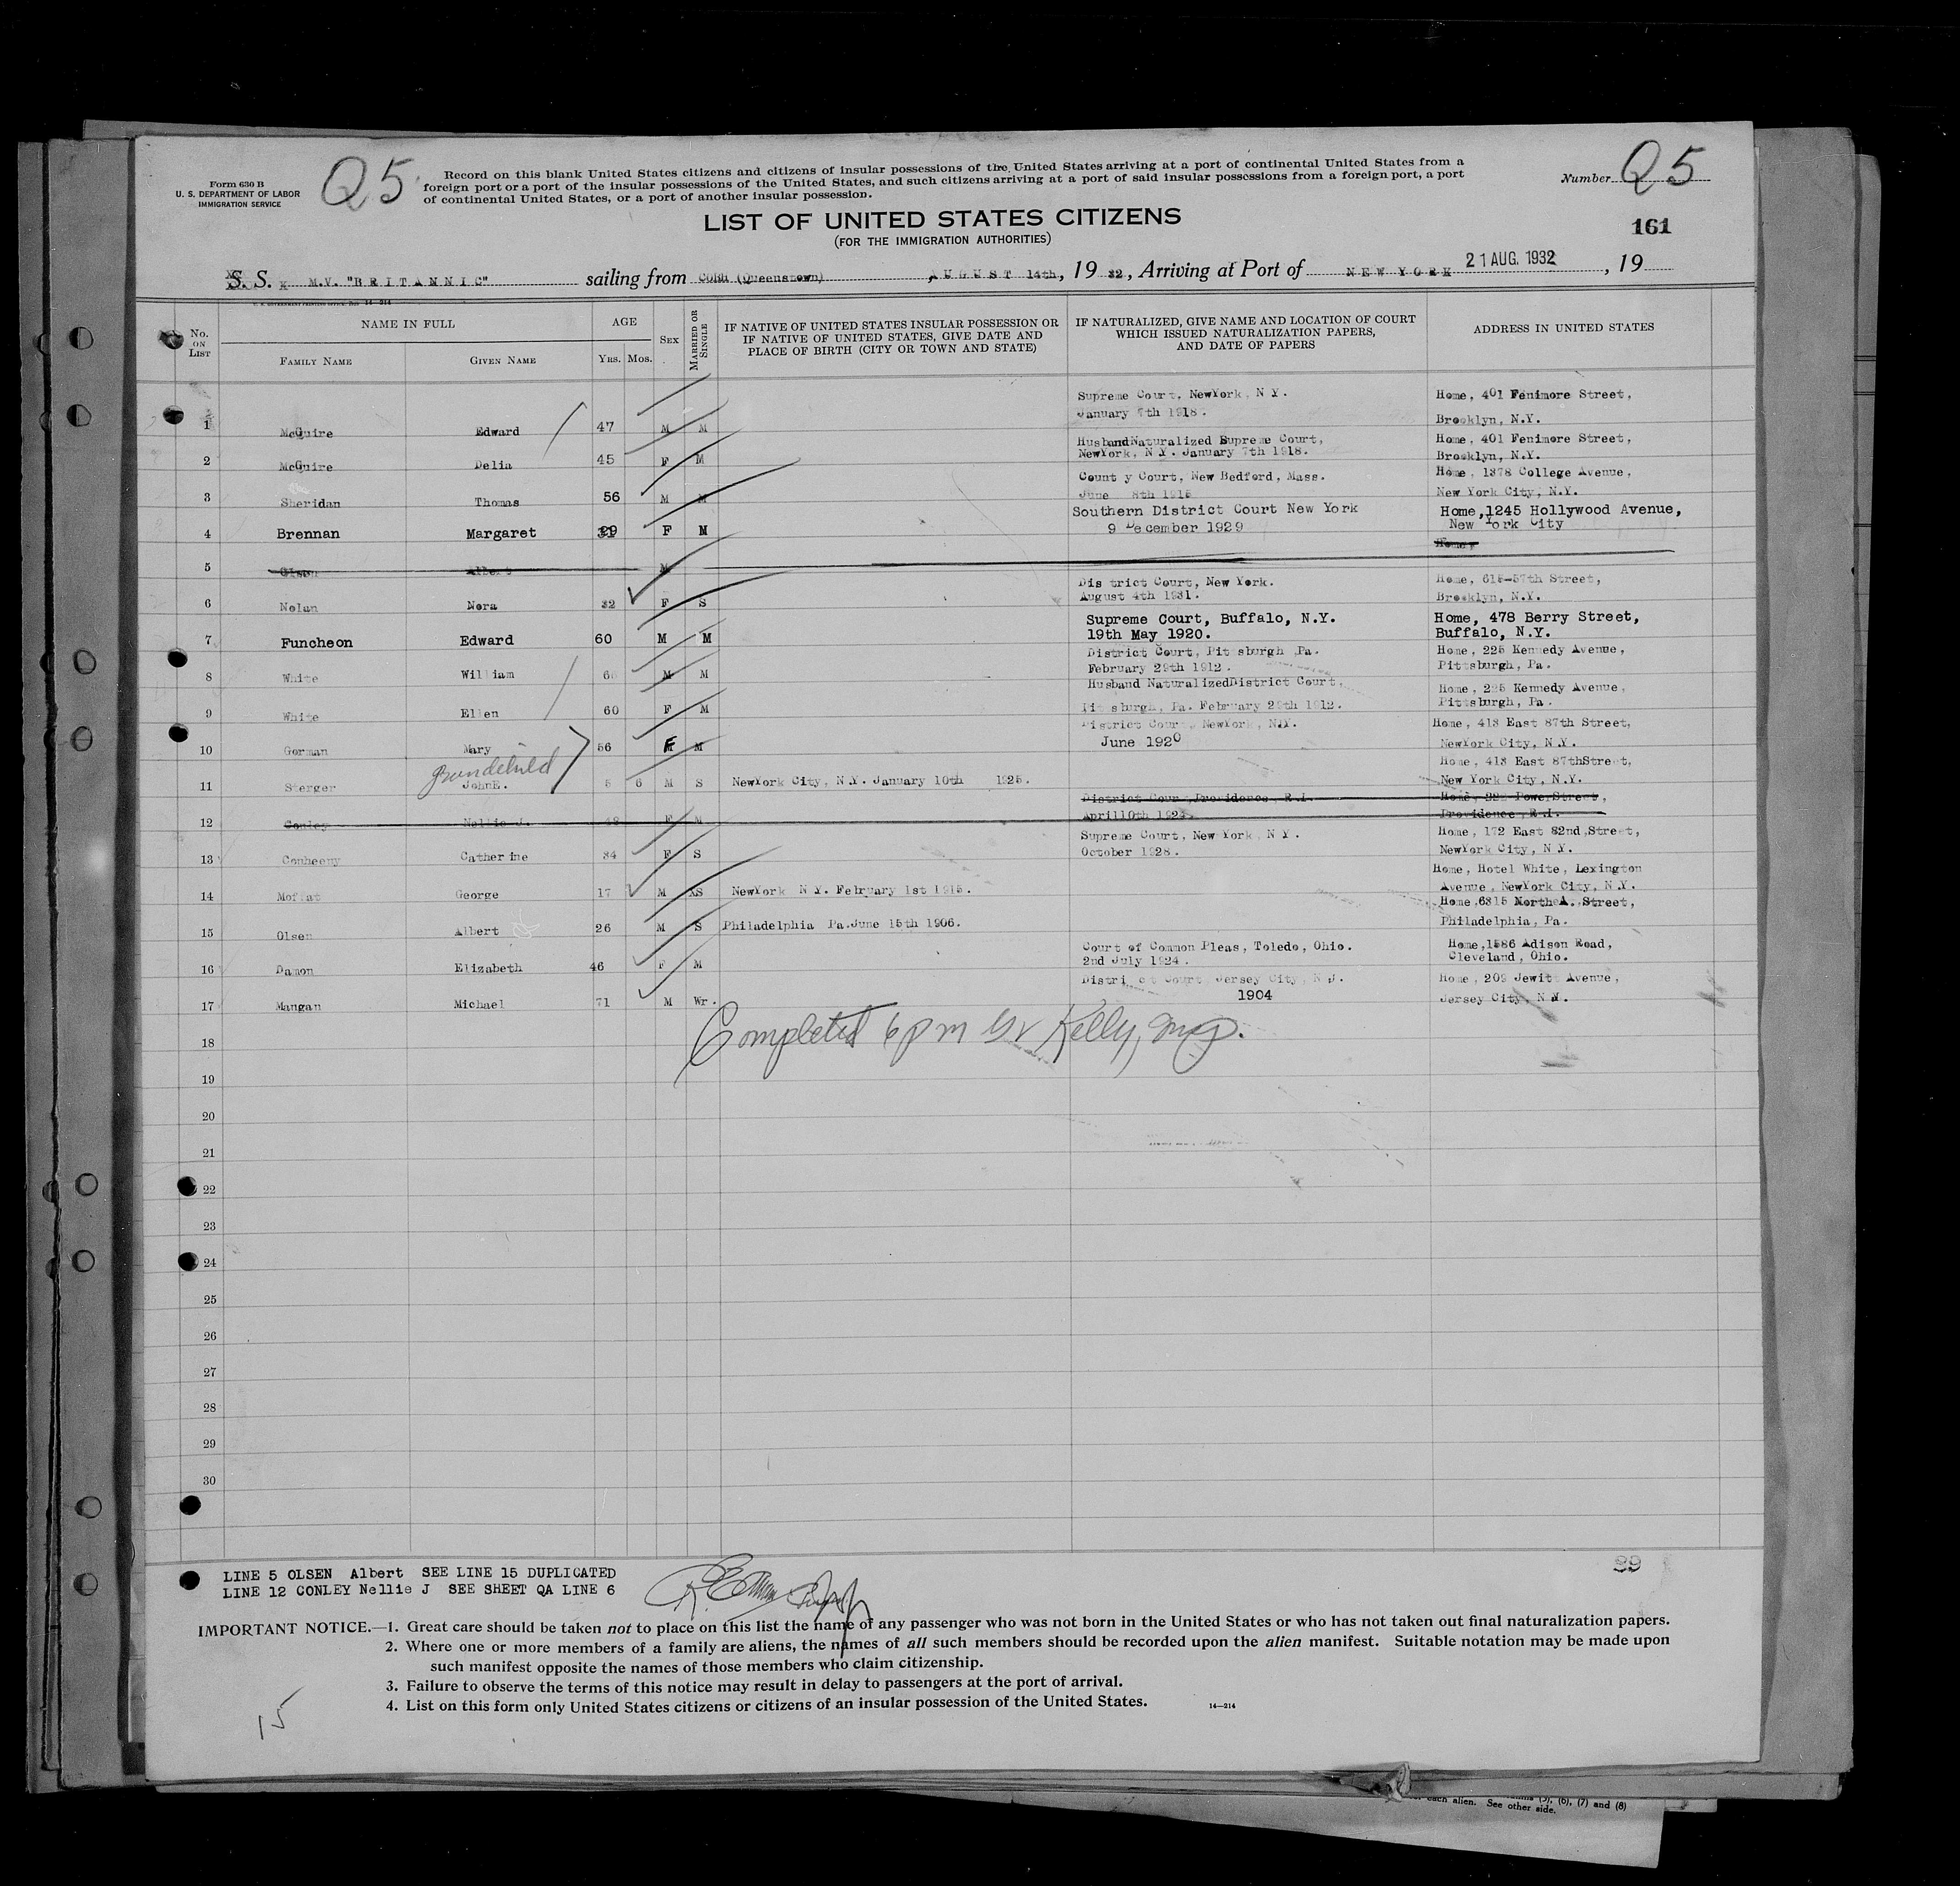 Form 630 B
U. S. DEPARTMENT OF LABOR
IMMIGRATION SERVICE
Q5
Record on this blank United States citizens and citizens of insular possessions of the United States arriving at a port of continental United States from a
foreign port or a port of the insular possessions of the United States, and such citizens arriving at a port of said insular possessions from a foreign port, a port
of continental United States, or a port of another insular possession.
Number Q5
LIST OF UNITED STATES CITIZENS
(FOR THE IMMIGRATION AUTHORITIES)
161
S. S. M.V. "BRITANNIC" sailing from Cobh (Queenstown), AUGUST 14th, 19 32, Arriving at Port of NEW YORK 21 AUG. 1932, 19
No. ON LIST NAME IN FULL FAMILY NAME GIVEN NAME AGE YRS. MOS. SEX MARRIED OR SINGLE
IF NATIVE OF UNITED STATES INSULAR POSSESSION OR
IF NATIVE OF UNITED STATES, GIVE DATE AND
PLACE OF BIRTH (CITY OR TOWN AND STATE)
IF NATURALIZED, GIVE NAME AND LOCATION OF COURT
WHICH ISSUED NATURALIZATION PAPERS,
AND DATE OF PAPERS
ADDRESS IN UNITED STATES
Supreme Court, NewYork, N Y. Home, 401 Fenimore Street,
1 McGuire Edward 47 M M January 7th 1918. Brooklyn, N.Y.
HusbandNaturalized Supreme Court, Home, 401 Fenimore Street,
2 McGuire Delia 45 F M NewYork, N Y. January 7th 1918. Brooklyn, N.Y.
Count y Court, New Bedford, Mass. Home, 1378 College Avenue,
3 Sheridan Thomas 56 M M June 8th 1915 New York City, N.Y.
Southern District Court New York Home,1245 Hollywood Avenue,
4 Brennan Margaret 29 F M 9 December 1929 New York City
Home,
5 Olsen Albert M
Dis trict Court, New York. Home, 615-57th Street,
6 Nolan Nora 32 F S August 4th 1931. Brooklyn, N.Y.
Supreme Court, Buffalo, N.Y. Home, 478 Berry Street,
7 Funcheon Edward 60 M M 19th May 1920. Buffalo, N.Y.
District Court, Pit sburgh Pa. Home, 225 Kennedy Avenue,
8 White William M M February 29th 1912. Pittsburgh, Pa.
Husband NaturalizedDistrict Court, Home, 225 Kennedy Avenue,
9 White Ellen 60 F M Pit sburgh, Pa. February 29th 1912. Pittsburgh, Pa.
District Court, NewYork, N.Y. Home, 413 East 87th Street,
10 Gorman Mary 56 F M June 1920 NewYork City, N.Y.
Grandchild
Home, 413 East 87thStreet,
11 Sterger JohnE. 5 6 M S NewYork City, N.Y. January 10th 1925. New York City, N.Y.
District Cour ,Providence, R.I. Home, Power Street,
12 Conley Nellie J. 48 F M April10th 1924. Providence, R.I.
Supreme Court, New York, N Y. Home, 172 East 82nd,Street,
13 Conheeny Catherine 34 F S October 1928. NewYork City, N Y.
Home, Hotel White, Lexington
14 Moffat George 17 M S NewYork N Y. February 1st 1915. Avenue, NewYork City, N.Y.
Home,6315 NorthA. Street,
15 Olsen Albert 26 M S Philadelphia Pa.June 15th 1906. Philadelphia, Pa.
Court of Common Pleas, Toledo, Ohio. Home,1586 Adison Road,
16 Damon Elizabeth 46 F M 2nd July 1924. Cleveland, Ohio.
Distri ct Court Jersey City, N J. Home, 209 Jewitt Avenue,
17 Mangan Michael 71 M Wr. 1904 Jersey City, N.Y.
18 Completed 6 pm Kelly, Insp.
19
20
21
22
23
24
25
26
27
28
29
30
LINE 5 OLSEN Albert SEE LINE 15 DUPLICATED
LINE 12 CONLEY Nellie J SEE SHEET QA LINE 6
IMPORTANT NOTICE.—1. Great care should be taken not to place on this list the name of any passenger who was not born in the United States or who has not taken out final naturalization papers.
2. Where one or more members of a family are aliens, the names of all such members should be recorded upon the alien manifest. Suitable notation may be made upon
such manifest opposite the names of those members who claim citizenship.
3. Failure to observe the terms of this notice may result in delay to passengers at the port of arrival.
4. List on this form only United States citizens or citizens of an insular possession of the United States.
14—214
15
each alien. See other side. (5), (6), (7) and (8)